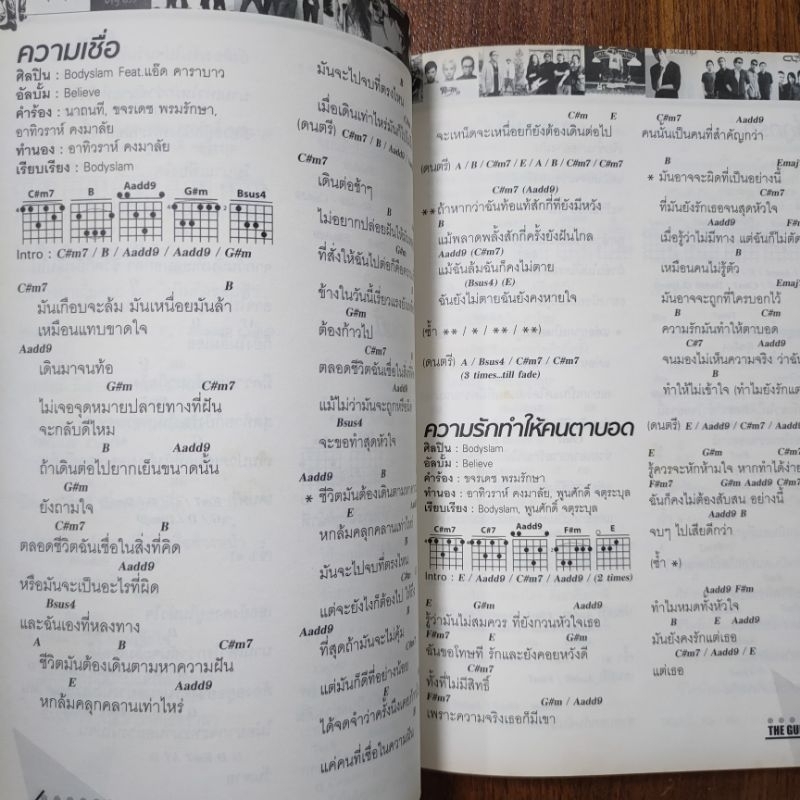 ความเชื่อ
ศิลปิน : Bodyslam Feat.แอ๊ด คาราบาว
อัลบั้ม : Believe
คำร้อง : นาถนที, ขจรเดช พรมรักษา,
อาทิวราห์ คงมาลัย
ทำนอง : อาทิวราห์ คงมาลัย
เรียบเรียง : Bodyslam
C#m7 B Aadd9 G#m Bsus4
Intro : C#m7 / B / Aadd9 / Aadd9 / G#m
C#m7 B
มันเกือบจะล้ม มันเหนื่อยมันล้า
เหมือนแทบขาดใจ
Aadd9
เดินมาจนท้อ
G#m C#m7
ไม่เจอจุดหมายปลายทางที่ฝัน
จะกลับดีไหม
B Aadd9
ถ้าเดินต่อไปยากเย็นขนาดนั้น
G#m
ยังถามใจ
C#m7 B
ตลอดชีวิตฉันเชื่อในสิ่งที่คิด
Aadd9
หรือมันจะเป็นอะไรที่ผิด
Bsus4
และฉันเองที่หลงทาง
A B C#m7
ชีวิตมันต้องเดินตามหาความฝัน
E Aadd9
หกล้มคลุกคลานเท่าไหร่
B
มันจะไปจบที่ตรงไหน
เมื่อเดินเท่าไหร่มันก็ไป
(ดนตรี) C#m7 / B / Aadd9
C#m7
เดินต่อช้าๆ
ไม่อยากปล่อยฝันให้
G#m
ที่สั่งให้ฉันไปต่อก็คือ
ข้างในวันนี้เรี่ยวแรงยัง
G#m
ต้องก้าวไป
C#m7
ตลอดชีวิตฉันเชื่อในสิ่ง
Aadd9
แม้ไม่ว่ามันจะถูกหรือ
Bsus4
จะขอทำสุดหัวใจ
Aadd9 B
* ชีวิตมันต้องเดินตาม
E
หกล้มคลุกคลานเท่าไหร่
B
มันจะไปจบที่ตรงไหน
แต่จะยังไงก็ต้องไป
Aadd9
ที่สุดถ้ามันจะไม่คุ้ม
แต่มันก็ดีที่อย่างน้อย
E
ได้จดจำว่าครั้งนึงเคย
แค่คนที่เชื่อในความฝัน
C#m E
จะเหน็ดจะเหนื่อยก็ยังต้องเดินต่อไป
(ดนตรี) A / B / C#m7 / E / A / B / C#m7 / C#m7
C#m7 (Aadd9)
**ถ้าหากว่าฉันท้อแท้สักกี่ทียังมีหวัง
B
แม้พลาดพลั้งสักกี่ครั้งยังฝันไกล
Aadd9 (C#m7)
แม้ฉันล้มฉันก็คงไม่ตาย
(Bsus4) (E)
ฉันยังไม่ตายฉันยังคงหายใจ
(ซ้ำ ** / * / ** / **)
(ดนตรี) A / Bsus4 / C#m7 / C#m7
(3 times...till fade)
ความรักทำให้คนตาบอด
ศิลปิน : Bodyslam
อัลบั้ม : Believe
คำร้อง : ขจรเดช พรมรักษา
ทำนอง : อาทิวราห์ คงมาลัย, พูนศักดิ์ จตุระบุล
เรียบเรียง : Bodyslam, พูนศักดิ์ จตุระบุล
C#m7 C#7 Aadd9 F#m E
Intro : E / Aadd9 / C#m7 / Aadd9 / (2 times)
E G#m Aadd9
รู้ว่ามันไม่สมควร ที่ยังกวนหัวใจเธอ
F#m7 E G#m
ฉันขอโทษที รักและยังคอยหวังดี
C#m7
ทั้งที่ไม่มีสิทธิ์
F#m7 G#m / Aadd9
เพราะความจริงเธอก็มีเขา
C#m7 Aadd9
คนนั้นเป็นคนที่สำคัญกว่า
B Emaj
* มันอาจจะผิดที่เป็นอย่างนี้
C#m7
ที่มันยังรักเธอจนสุดหัวใจ
Aadd9
เมื่อรู้ว่าไม่มีทาง แต่ฉันก็ไม่
B
เหมือนคนไม่รู้ตัว
Emaj
มันอาจจะถูกที่ใครบอกไว้
B C#m7
ความรักมันทำให้ตาบอด
C#7 Aadd9
จนมองไม่เห็นความจริง ว่าฉัน
B
ทำให้ไม่เข้าใจ (ทำไมยังรัก
(ดนตรี) E / Aadd9 / C#m7 / Aadd9
E G#m C#m7
รู้ควรจะหักห้ามใจ หากทำได้ง่าย
F#m7 G#m Aadd9 C#m7
ฉันก็คงไม่ต้องสับสน อย่างนี้
Aadd9 B
จบๆ ไปเสียดีกว่า
(ซ้ำ *)
Aadd9 F#m
ทำไมหมดทั้งหัวใจ
B E Aadd9
มันยังคงรักแต่เธอ
C#m7 / Aadd9 / E
แต่เธอ
THE GU